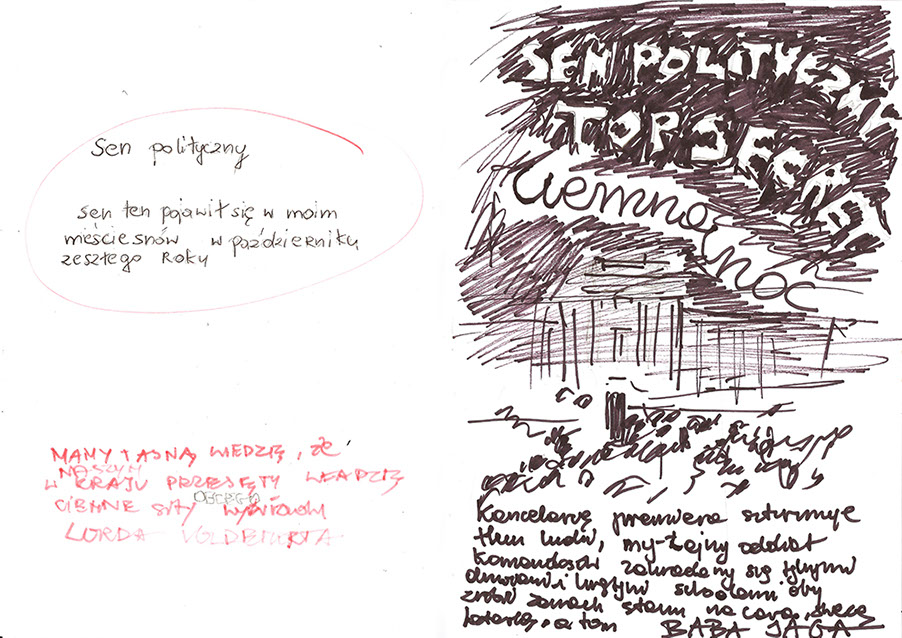 Sen polityczny
sen ten pojawił się w moim
mieście snów w październiku
zeszłego roku
MAMY JASNĄ WIEDZĘ, ŻE
NASZYM
W KRAJU PRZEJĘŁY WŁADZĘ
CIEMNE SIŁY
LORDA VOLDEMORTA
SEN POLITYCZNY
TOP SECRET
Ciemność noc
Kancelarię premiera szturmuje
tłum ludzi, my - tajny oddział
komandosów zakradamy się tylnymi
drzwiami i krętymi schodami aby
zrobić zamach stanu na cara, świecę
latarką, a tam BABA JAGA